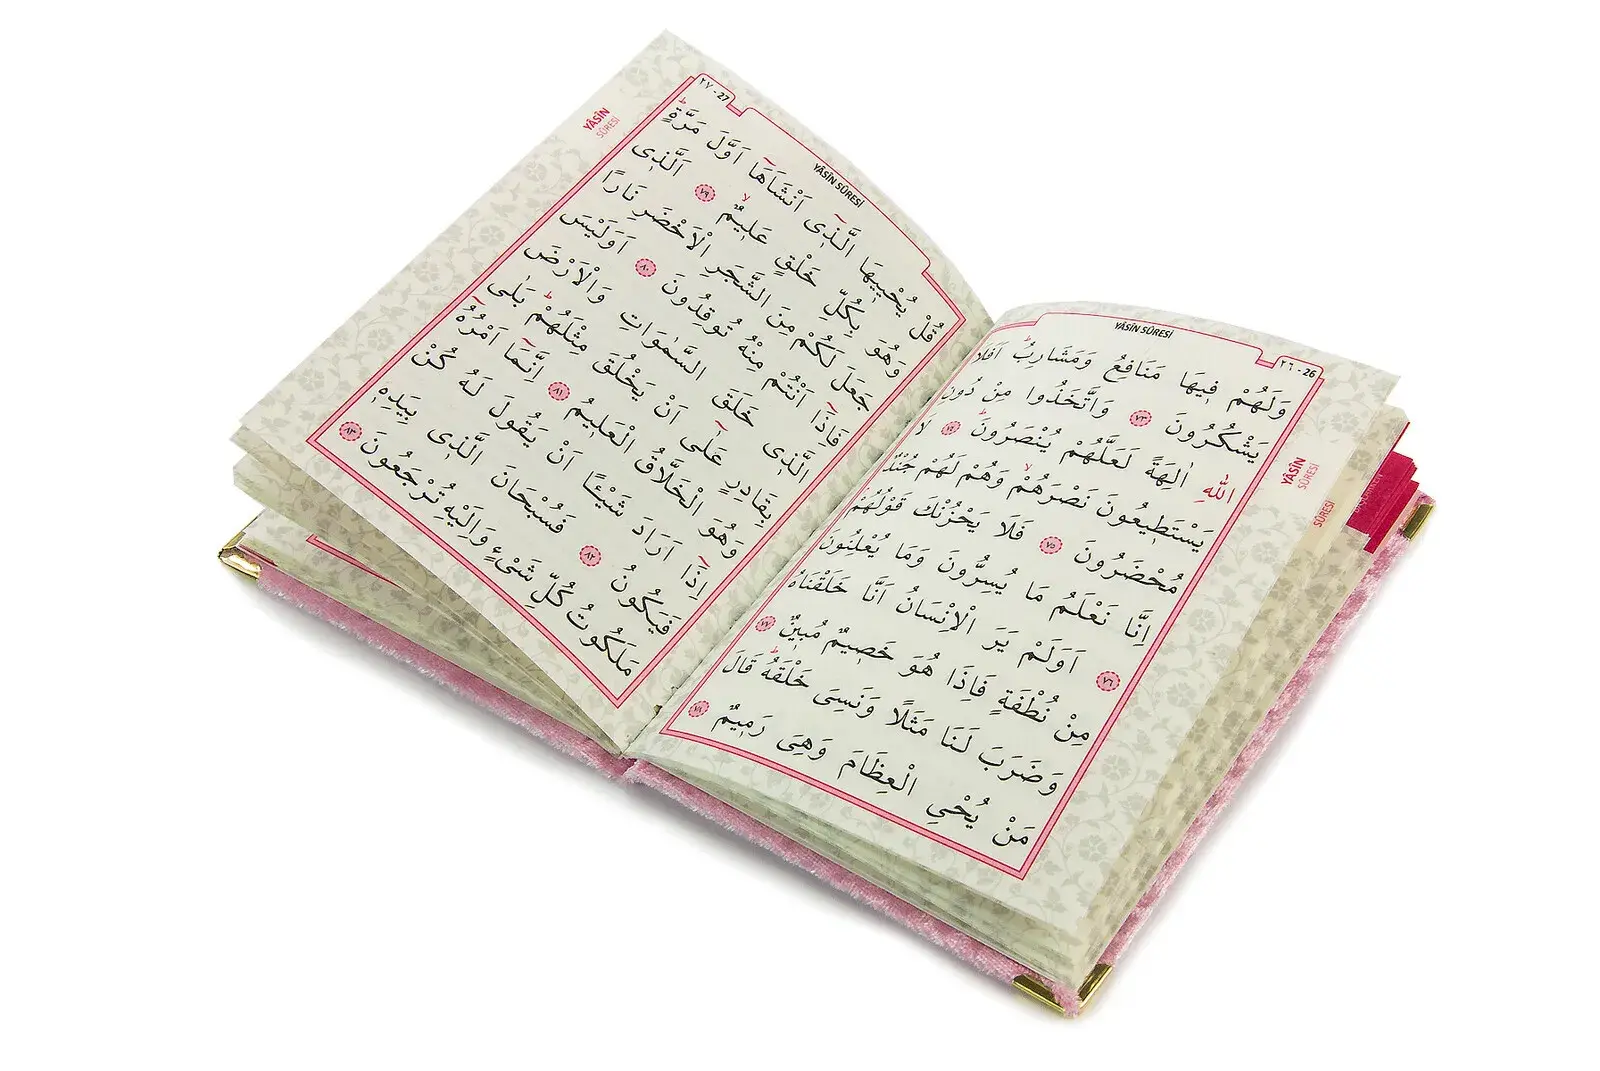 YÂSÎN SÛRESİ
٢٦ - 26
وَلَهُمْ فِيهَا مَنَافِعُ وَمَشَارِبُۜ اَفَلَا
يَشْكُرُونَ ٧٣ وَاتَّخَذُوا مِنْ دُونِ
اللّٰهِ اٰلِهَةً لَعَلَّهُمْ يُنْصَرُونَۜ ٧٤ لَا
يَسْتَط۪يعُونَ نَصْرَهُمْۙ وَهُمْ لَهُمْ جُنْدٌ
مُحْضَرُونَ ٧٥ فَلَا يَحْزُنْكَ قَوْلُهُمْۢ
اِنَّا نَعْلَمُ مَا يُسِرُّونَ وَمَا يُعْلِنُونَ
٧٦ اَوَلَمْ يَرَ الْاِنْسَانُ اَنَّا خَلَقْنَاهُ
مِنْ نُطْفَةٍ فَاِذَا هُوَ خَص۪يمٌ مُب۪ينٌ ٧٧
وَضَرَبَ لَنَا مَثَلًا وَنَسِيَ خَلْقَهُۜ قَالَ
مَنْ يُحْيِ الْعِظَامَ وَهِيَ رَم۪يمٌ ٧٨
YÂSÎN
SÛRESİ
SÛRESİ
YÂSÎN
SÛRESİ
٢٧ - 27
YÂSÎN SÛRESİ
قُلْ يُحْي۪يهَا الَّذ۪ٓي اَنْشَاَهَٓا اَوَّلَ مَرَّةٍۜ
وَهُوَ بِكُلِّ خَلْقٍ عَل۪يمٌۙ ٧٩ اَلَّذ۪ي
جَعَلَ لَكُمْ مِنَ الشَّجَرِ الْاَخْضَرِ نَارًا
فَاِذَٓا اَنْتُمْ مِنْهُ تُوقِدُونَ ٨٠ اَوَلَيْسَ
الَّذ۪ي خَلَقَ السَّمٰوَاتِ وَالْاَرْضَ
بِقَادِرٍ عَلٰٓى اَنْ يَخْلُقَ مِثْلَهُمْۜ بَلٰى
وَهُوَ الْخَلَّاقُ الْعَل۪يمُ ٨١ اِنَّمَٓا اَمْرُهُٓ
اِذَٓا اَرَادَ شَيْـًٔا اَنْ يَقُولَ لَهُ كُنْ
فَيَكُونُ ٨٢ فَسُبْحَانَ الَّذ۪ي بِيَدِه۪
مَلَكُوتُ كُلِّ شَيْءٍ وَاِلَيْهِ تُرْجَعُونَ ٨٣